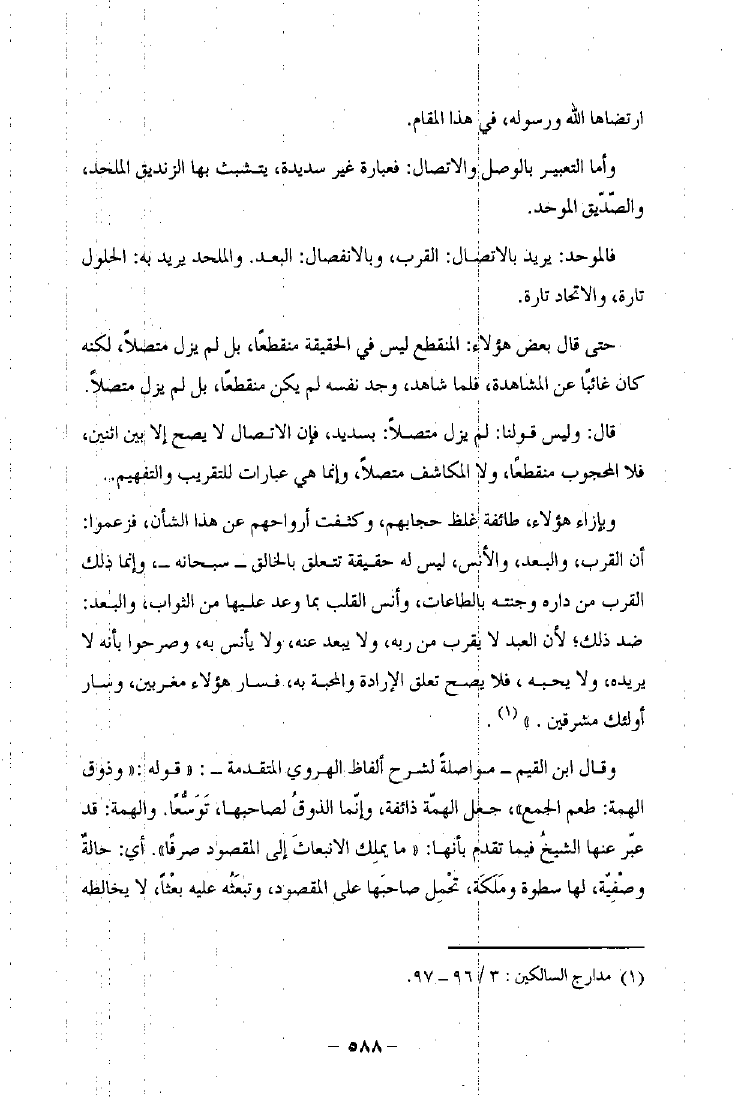 ارتضاها الله ورسوله، في هذا المقام.
وأما التعبير بالوصل والاتصال: فعبارة غير سديدة، يتشبث بها الزنديق الملحد،
والصّدّيق الموحد.
فالموحد: يريد بالاتصال: القرب، وبالانفصال: البعد. والملحد يريد به: الحلول
تارة، والاتحاد تارة.
حتى قال بعض هؤلاء: المنقطع ليس في الحقيقة منقطعًا، بل لم يزل متصلاً، لكنه
كان غائبًا عن المشاهدة، فلما شاهد، وجد نفسه لم يكن منقطعًا، بل لم يزل متصلاً.
قال: وليس قولنا: لم يزل متصلاً: بسديد، فإن الاتصال لا يصح إلا بين اثنين،
فلا المحجوب منقطعًا، ولا المكاشف متصلاً، وإنما هي عبارات للتقريب والتفهيم..
وبإزاء هؤلاء، طائفة غلظ حجابهم، وكثفت أرواحهم عن هذا الشأن، فزعموا:
أن القرب، والبعد، والأنس، ليس له حقيقة تتعلق بالخالق ــ سبحانه ــ، وإنما ذلك
القرب من داره وجنته بالطاعات، وأنس القلب بما وعد عليها من الثواب، والبعد:
ضد ذلك؛ لأن العبد لا يقرب من ربه، ولا يبعد عنه، ولا يأنس به، وصرحوا بأنه لا
يريده، ولا يحبه ، فلا يصح تعلق الإرادة والمحبة به، فسار هؤلاء مغربين، وسار
أولئك مشرقين . » (١) .
وقال ابن القيم ــ مواصلةً لشرح ألفاظ الهروي المتقدمة ــ : « قوله :« وذوق
الهمة: طعم الجمع»، جعل الهمّة ذائقة، وإنّما الذوقُ لصاحبها، تَوَسُّعًا. والهمة: قد
عبّر عنها الشيخُ فيما تقدم بأنها: « ما يملك الانبعاثَ إلى المقصود صرفًا». أي: حالةٌ
وصْفيّة، لها سطوة ومَلَكَة، تحْمل صاحبَها على المقصود، وتبعَثُه عليه بعْثاً، لا يخالطه
(١) مدارج السالكين : ٣ / ٩٦ – ٩٧.
– ٥٨٨ –